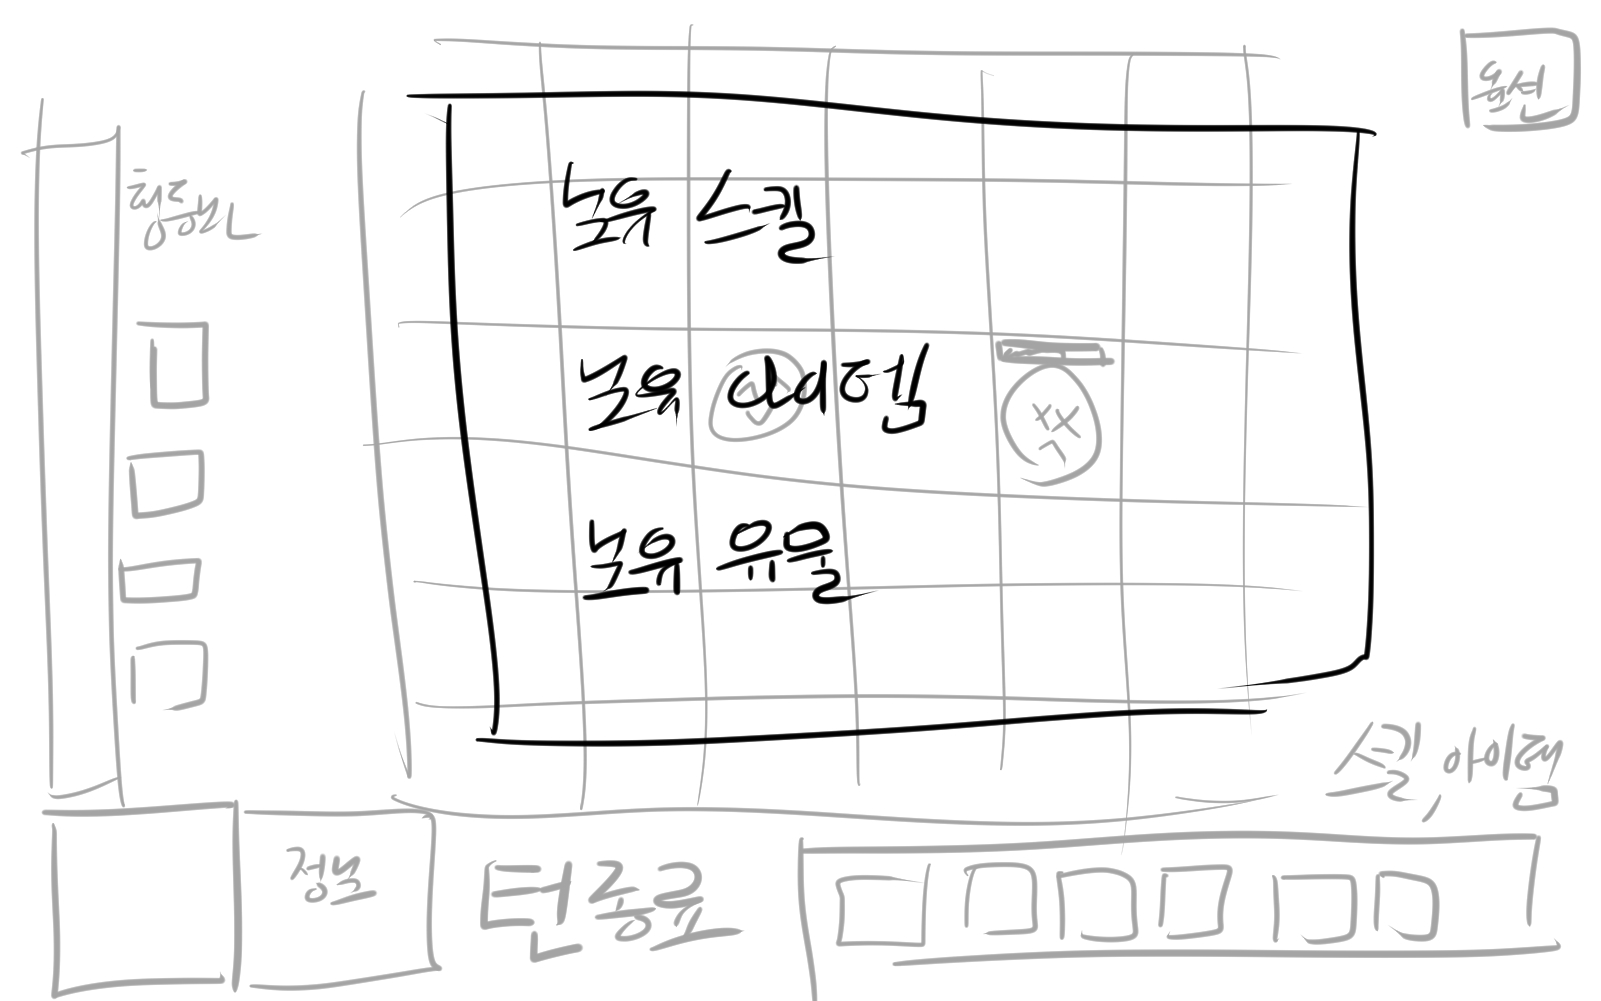 옵션
행동바
노유 스킬
노유 아이템
노유 유물
스킬, 아이템
정보
턴종료